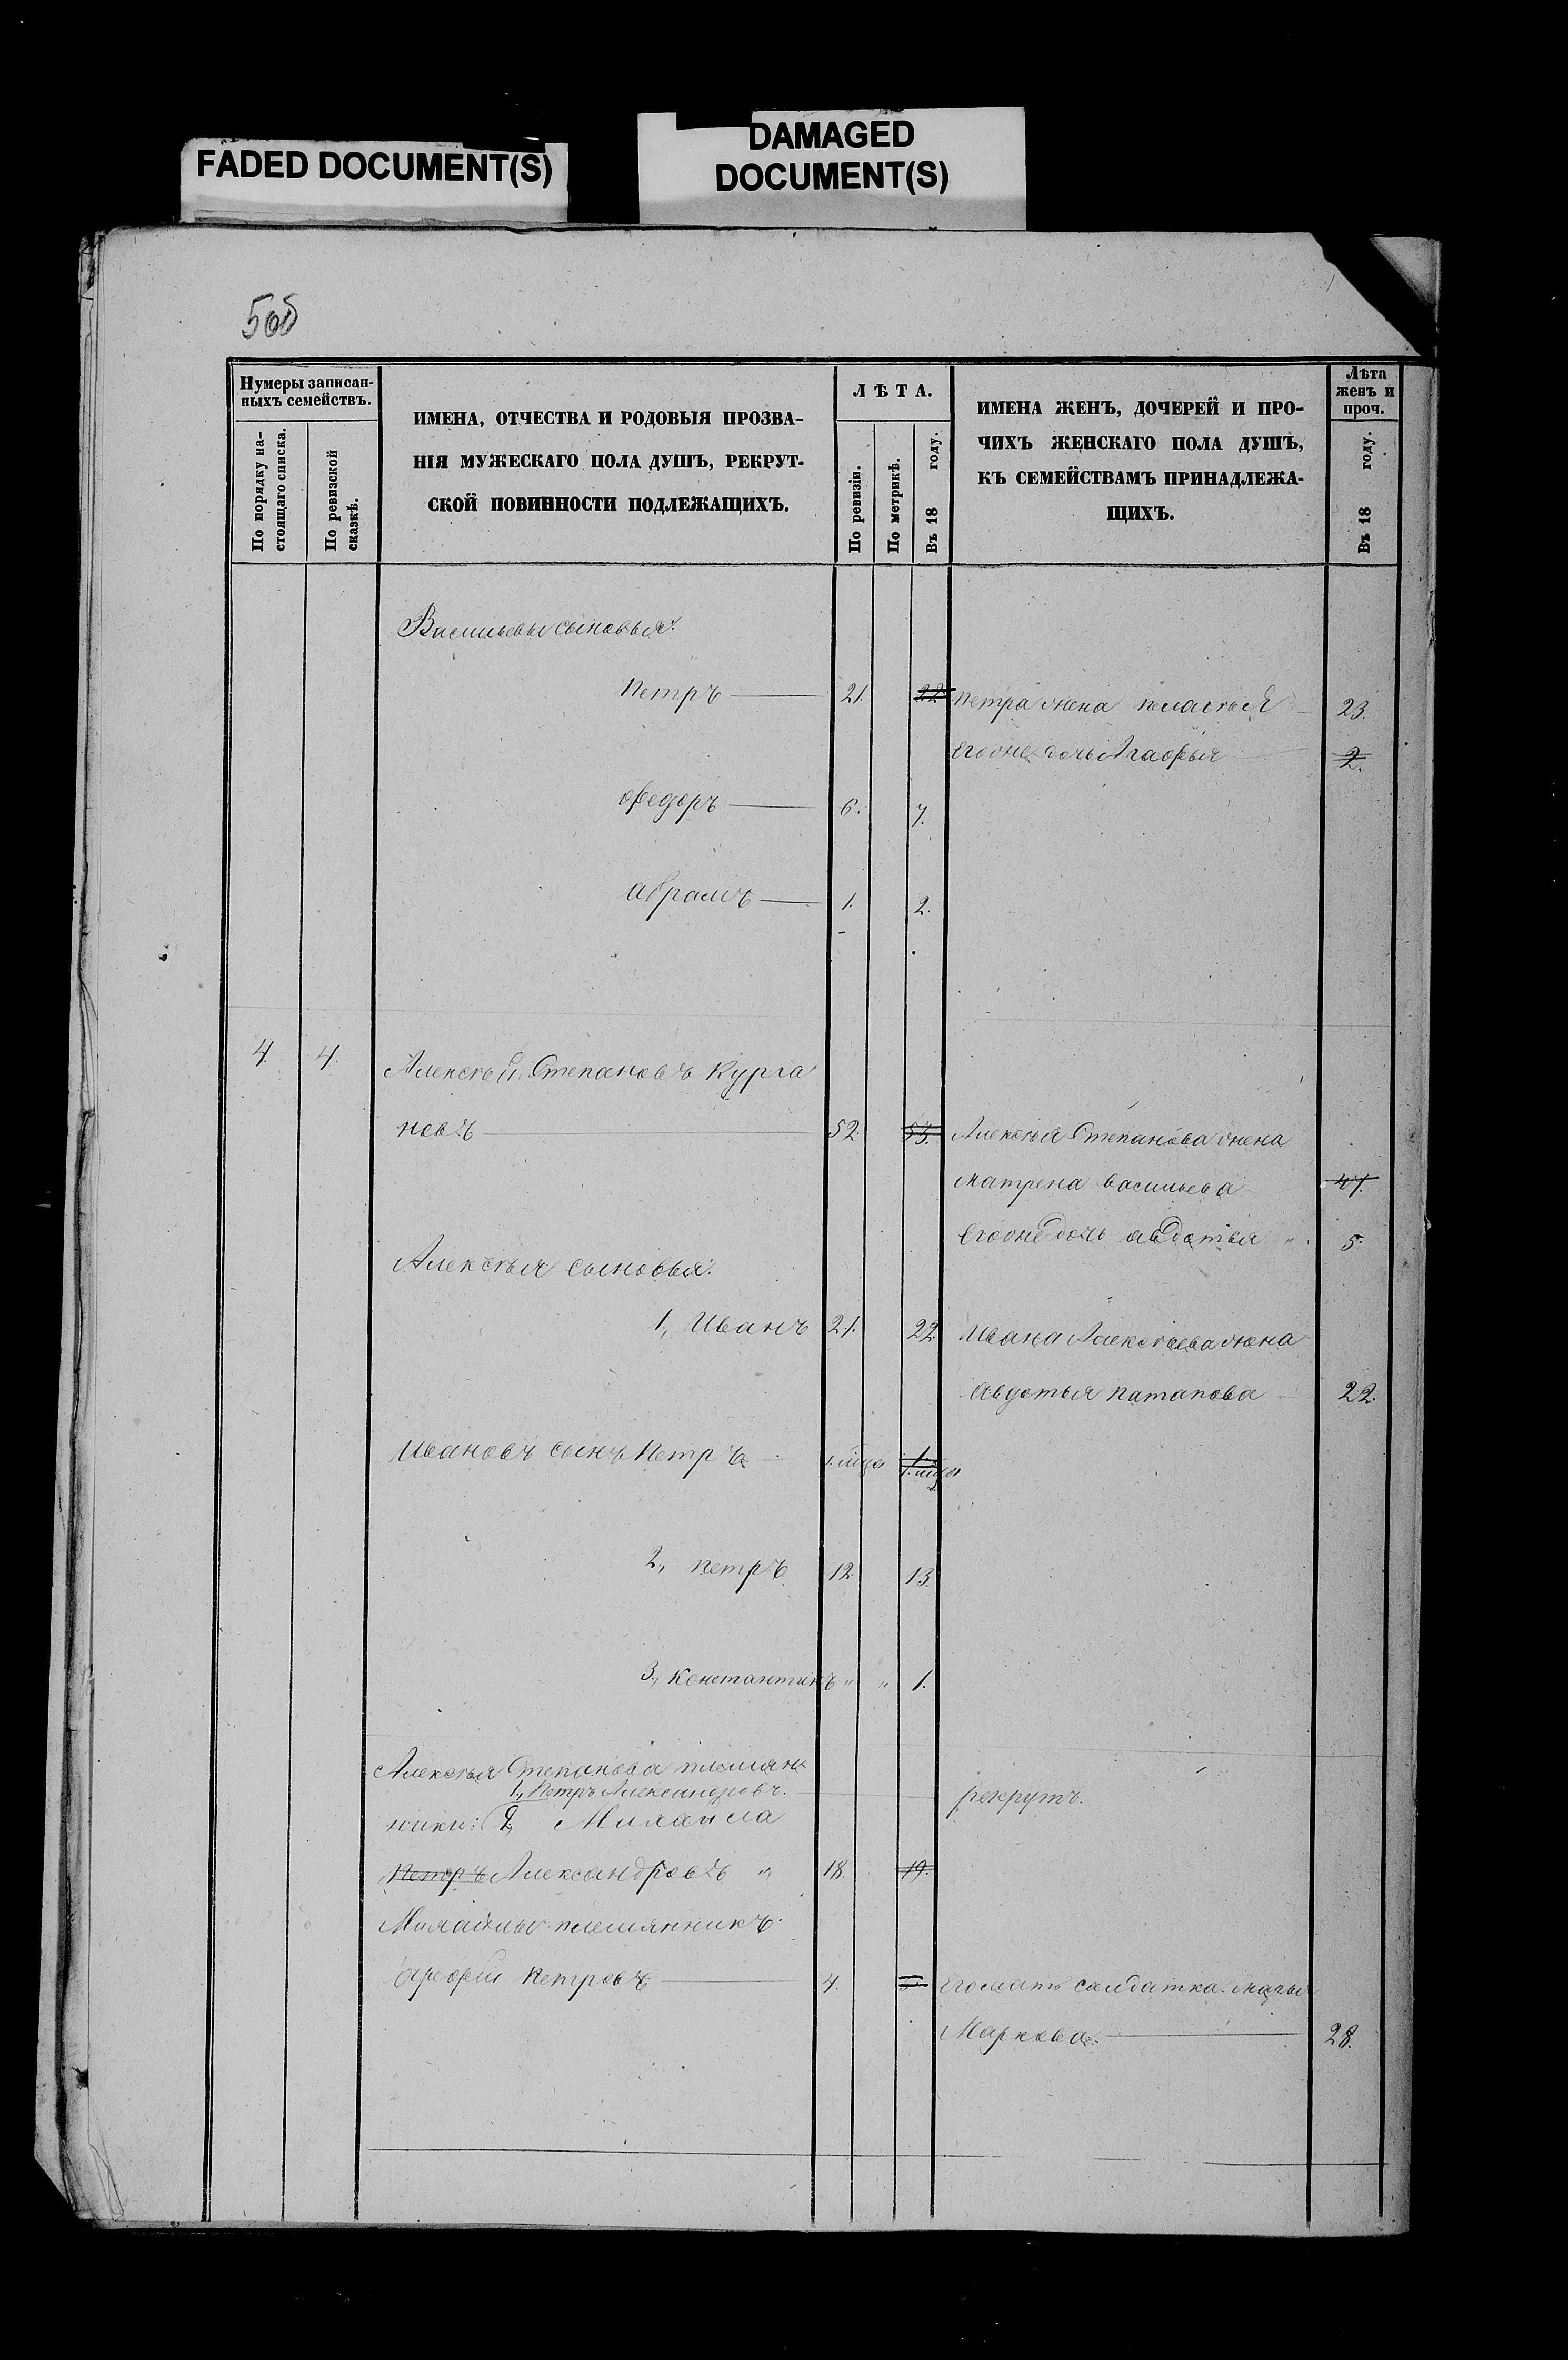 FADED DOCUMENT(S)
DAMAGED
DOCUMENT(S)
Нумеры записан-
ныхъ семействъ.
По порядку на-
стоящаго списка.
По ревизской
сказкѣ.
ИМЕНА, ОТЧЕСТВА И РОДОВЫЯ ПРОЗВА-
НІЯ МУЖЕСКАГО ПОЛА ДУШЪ, РЕКРУТ-
СКОЙ ПОВИННОСТИ ПОДЛЕЖАЩИХЪ.
ЛѢТА.
По ревизіи.
По метрикѣ.
Въ 18 году.
ИМЕНА ЖЕНЪ, ДОЧЕРЕЙ И ПРО-
ЧИХЪ ЖЕНСКАГО ПОЛА ДУШЪ,
КЪ СЕМЕЙСТВАМЪ ПРИНАДЛЕЖА-
ЩИХЪ.
Лѣта
женъ и
проч.
Въ 18 году.
Васильевы сыновья:
Петръ 21. 22 Петра жена пелагѣя 23.
дочь Агафья 2.
Федоръ 6. 7.
аврамъ 1. 2.
4. 4. Алексѣй Степановъ Курга
новъ 52. 53. Алексѣя Степанова жена
матрена васильева 41.
дочь авдотья 5.
Алексѣя сыновья:
1., Иванъ 21. 22 Ивана Алексѣева жена
авдотья патапова 22.
Ивановъ сынъ Петръ 1
2., петръ 12. 13.
3., Константинъ " " 1.
Алексѣя Степанова племян
1., Петръ Александровъ. рекрутъ.
ники: 2, Михаила
Петръ Александровъ " 18. 19.
Михайлы племянникъ
Петровъ 4. его мать салдатка
Маркова 28.